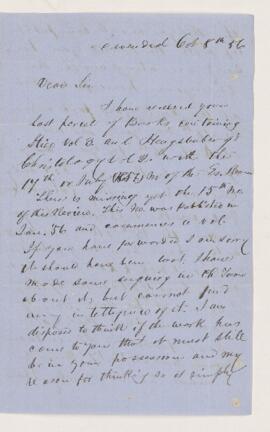 Oct 8th 56
Dear Sir
I have received your
last parcel of Books, containing
Stier vol 2 and Hengstenberg's
Christology vol 2. with the
17th or July No of the Ev. Review
There is missing yet the 15th No
of the Review. This No. was published in
Jan. 56 and commences a vol.
If you have forwarded I am sorry
it should have been lost. I have
made some enquiry in
about it, but cannot find
any intelligence of it. I am
disposed to think if the work has
come to you that it must still
be in your possession and my
reason for thinking so is simply